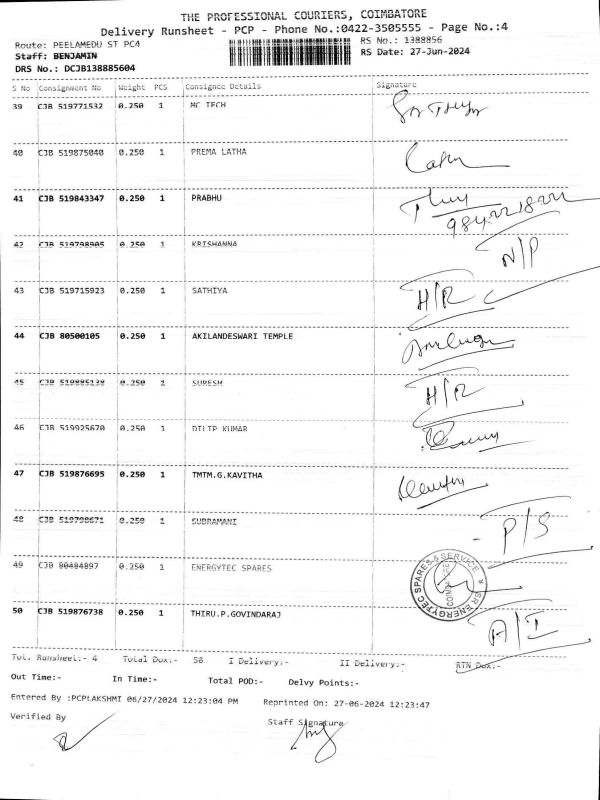 THE PROFESSIONAL COURIERS, COIMBATORE
Delivery Runsheet - PCP - Phone No.:0422-3505555 - Page No.:4
Route: PEELAMEDU ST PC4 RS No.: 1388856
Staff: BENJAMIN RS Date: 27-Jun-2024
DRS No.: DCJB138885604
S No Consignment No Weight PCS Consignee Details Signature
39 CJB 519771532 0.250 1 MC TECH
40 CJB 519875040 0.250 1 PREMA LATHA Latha
41 CJB 519843347 0.250 1 PRABHU
9842221822
42 CJB 519798905 0.250 1 KRISHANNA N/P
43 CJB 519715923 0.250 1 SATHIYA H/R
44 CJB 80500105 0.250 1 AKILANDESWARI TEMPLE
45 CJB 519885138 0.250 1 SURESH H/R
46 CJB 519925670 0.250 1 DILIP KUMAR
47 CJB 519876695 0.250 1 TMTM.G.KAVITHA
48 CJB 519798671 0.250 1 SUBRAMANI - P/S
49 CJB 80484897 0.250 1 ENERGYTEC SPARES ENERGYTEC SPARES & SERVICES
50 CJB 519876738 0.250 1 THIRU.P.GOVINDARAJ A/I
Tot. Runsheet:- 4 Total Dox:- 50 I Delivery:- II Delivery:- RTN Dox:-
Out Time:- In Time:- Total POD:- Delvy Points:-
Entered By :PCPLAKSHMI 06/27/2024 12:23:04 PM Reprinted On: 27-06-2024 12:23:47
Verified By Staff Signature